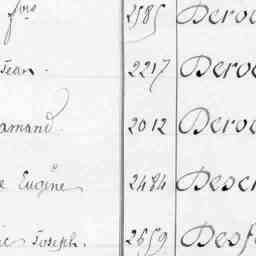 fois 2585 Derou
Jean. 2217 Derou
amand. 2012 Derou
e Eugène 2484 Descr
ie Joseph. 2659 Desf